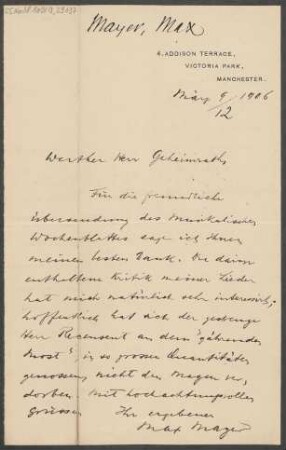 Mayer, Max
4, ADDISON TERRACE,
VICTORIA PARK,
MANCHESTER.
März 9/12 1906
Werther Herr Geheimrath
Für die freundliche
Übersendung des Musikalischen
Wochenblattes sage ich Ihnen
meinen besten Dank. Die darin
enthaltene Kritik meiner Lieder
hat mich natürlich sehr interessirt;
hoffentlich hat sich der gestrenge
Herr Recensent an dem "gährenden
Most", in so grossen Quantitäten
genossen, nicht den Magen ver-
dorben. Mit hochachtungsvollen
Grüssen
Ihr ergebener
Max Mayer